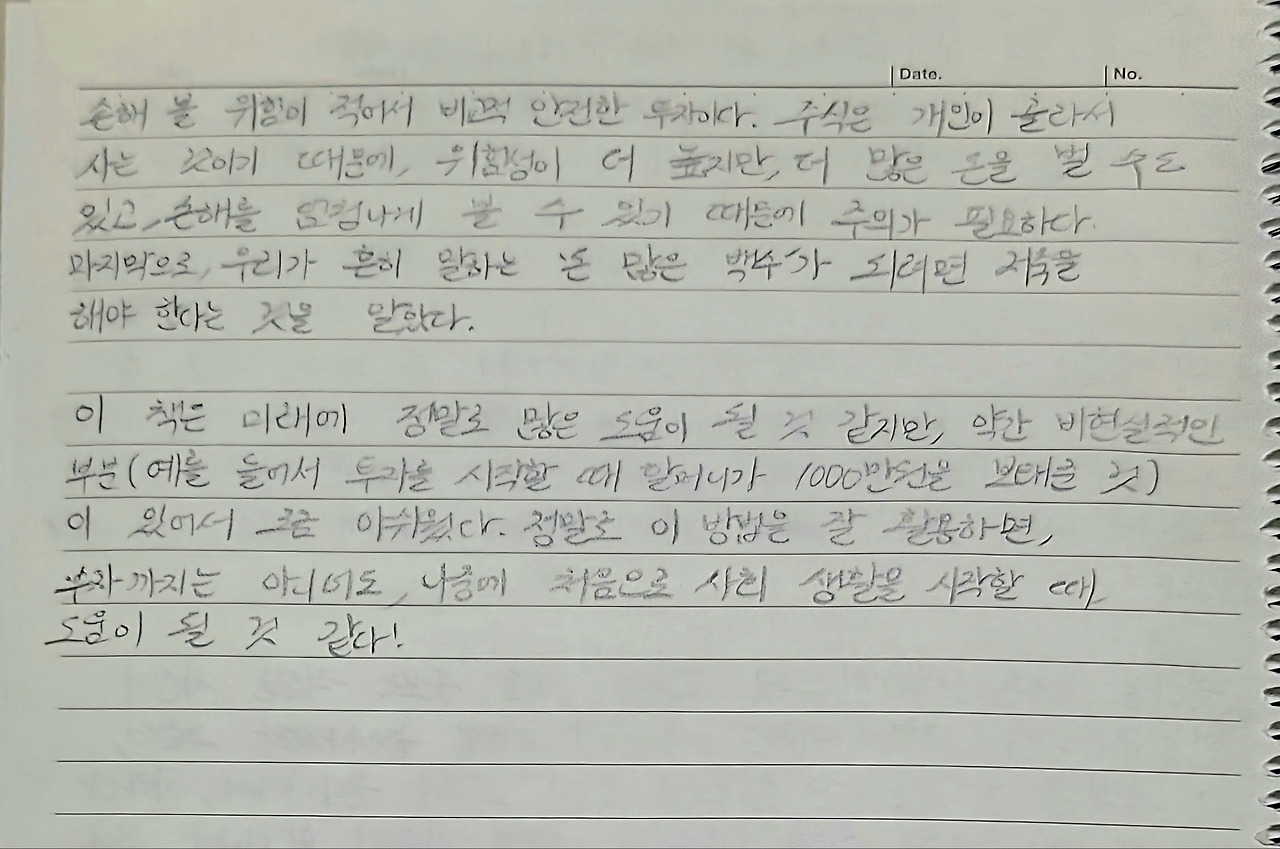 Date. No.
손해 볼 위험이 적어서 비교적 안전한 투자이다. 주식은 개인이 골라서
사는 것이기 때문에, 위험성이 더 높지만, 더 많은 돈을 벌 수도
있고, 손해를 엄청나게 볼 수 있기 때문에 주의가 필요하다.
마지막으로, 우리가 흔히 말하는 '돈 많은 백수'가 되려면 저축을
해야 한다는 것을 말했다.
이 책은 미래에 정말로 많은 도움이 될 것 같지만, 약간 비현실적인
부분(예를 들어서 투자를 시작할 때 할머니가 1000만원을 보태준 것)
이 있어서 조금 아쉬웠다. 정말로 이 방법을 잘 활용하면,
부자까지는 아니어도, 나중에 처음으로 사회 생활을 시작할 때,
도움이 될 것 같다!